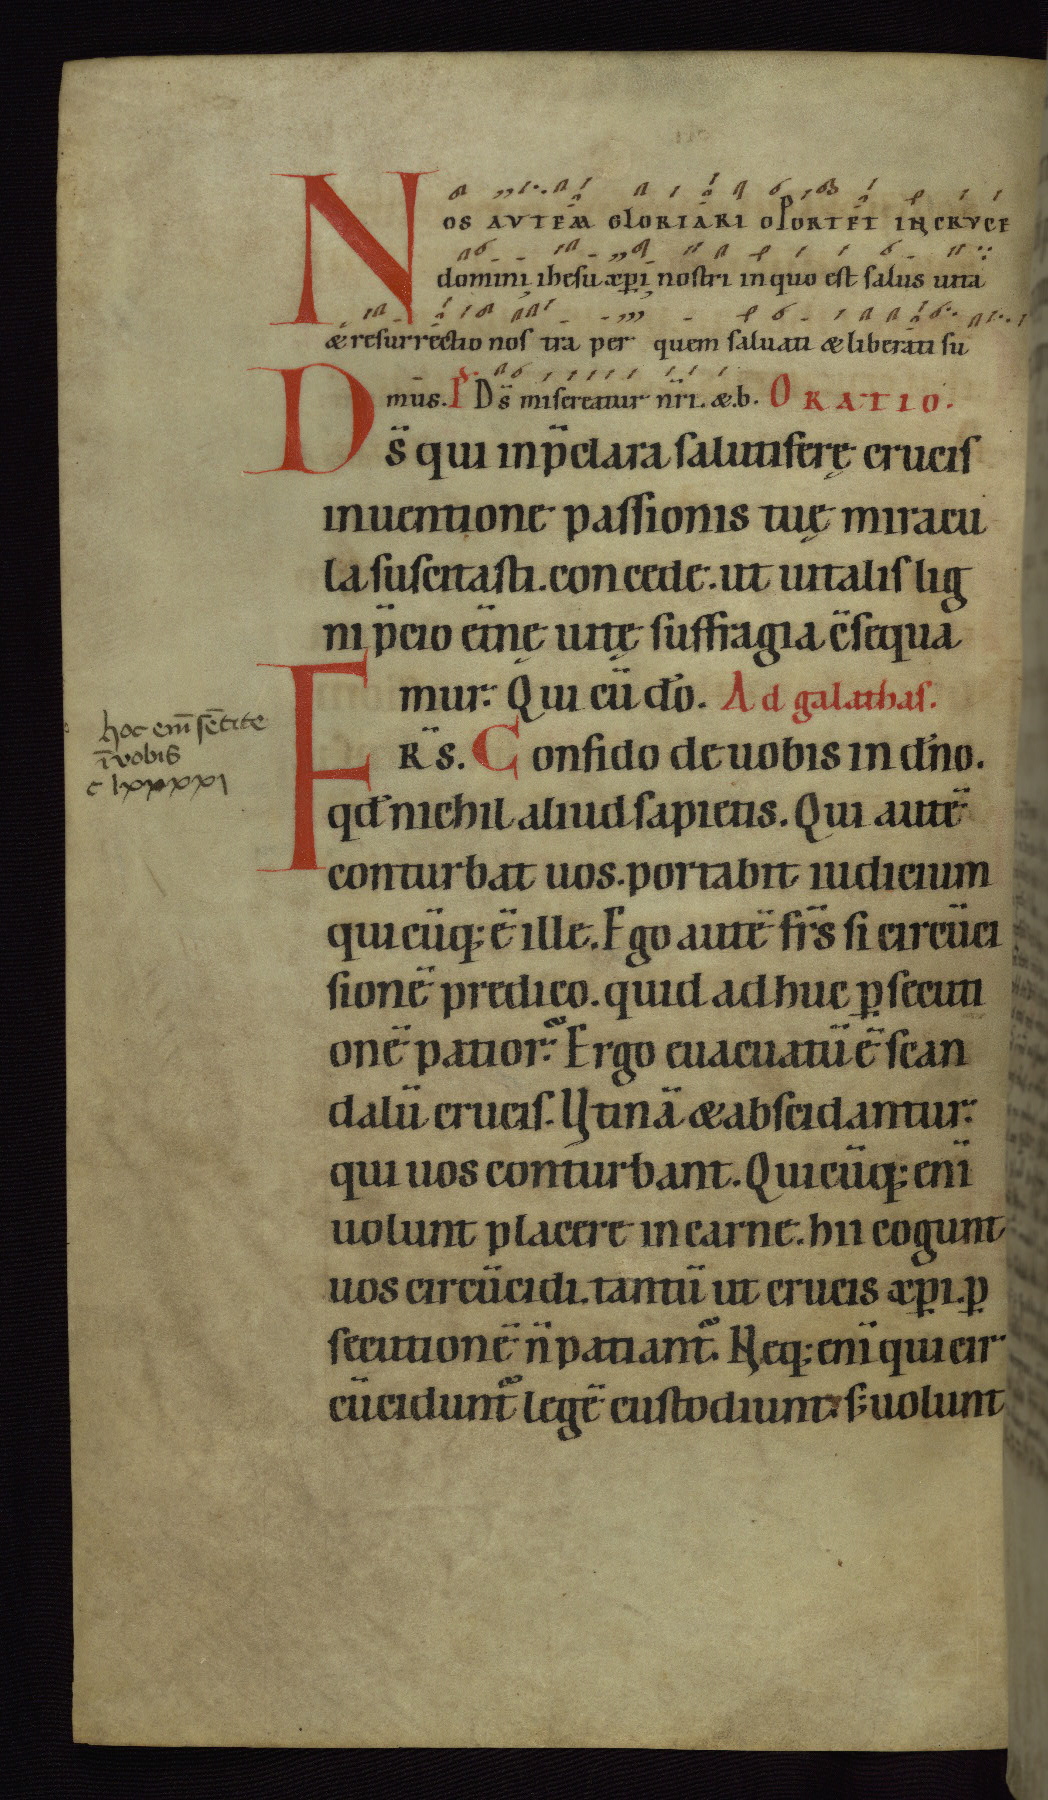 NOS AVTEM GLORIARI OPORTET IN CRVCE
domini ihesu xp̄i nostri in quo est salus uita
& resurrectio nostra per quem saluati & liberati su
mus. Ps. Ds̄ misereatur nr̄i. & b. ORATIO.
Ds̄ qui in p̄clara salutiferę crucis
inuentione passionis tuę miracu
la suscitasti. concede: ut uitalis lig
ni p̄cio et̄nę uitę suffragia c̄sequa
mur. Qui cū do. Ad galathas.
FRs̄. Confido de uobis in dn̄o.
qđ nichil aliud sapietis. Qui autē
conturbat uos. portabit iudicium
quicūq; ē ille. Ego autē fr̄s si circūci
sionē predico. quid adhuc ꝑsecuti
onē patior? Ergo euacuatū ē scan
dalū crucis. Utinā & abscidantur.
qui uos conturbant. Quicūq; enī
uolunt placere in carne. hii cogunt
uos circūcidi. tantū ut crucis xp̄i. ꝑ
secutionē n̄ patiant᷑. Neq; enī qui cir
cūcidunt᷑ legē custodiunt. s; uolunt
hoc em̄ sētite
ī vobis
c lxxxxi